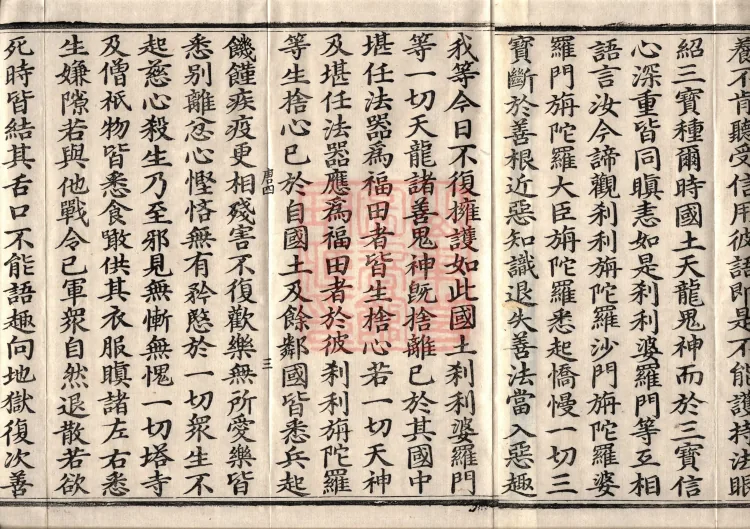 養不肯聽受信用彼語即是不能護持法眼
紹三寶種爾時國土天龍鬼神而於三寶信
心深重皆同瞋恚如是刹利婆羅門等互相
語言汝今諦觀刹利旃陀羅沙門旃陀羅婆
羅門旃陀羅大臣旃陀羅悉起憍慢一切三
寶斷於善根近惡知識退失善法當入惡趣
我等今日不復擁護如此國土刹利婆羅門
等一切天龍諸善鬼神既捨離已於其國中
堪任法器爲福田者皆生捨心若一切天神
及堪任法器應爲福田者於彼刹利旃陀羅
等生捨心已於自國土及餘鄰國皆悉兵起
唐四
三
饑饉疾疫更相殘害不復歡樂無所愛樂皆
悉別離忿心慳悋無有矜愍於一切衆生不
起慈心殺生乃至邪見無慚無愧一切塔寺
及僧祇物皆悉食噉供其衣服瞋諸左右悉
生嫌隙若與他戰令已軍衆自然退散若欲
死時皆結其舌口不能語趣向地獄復次善